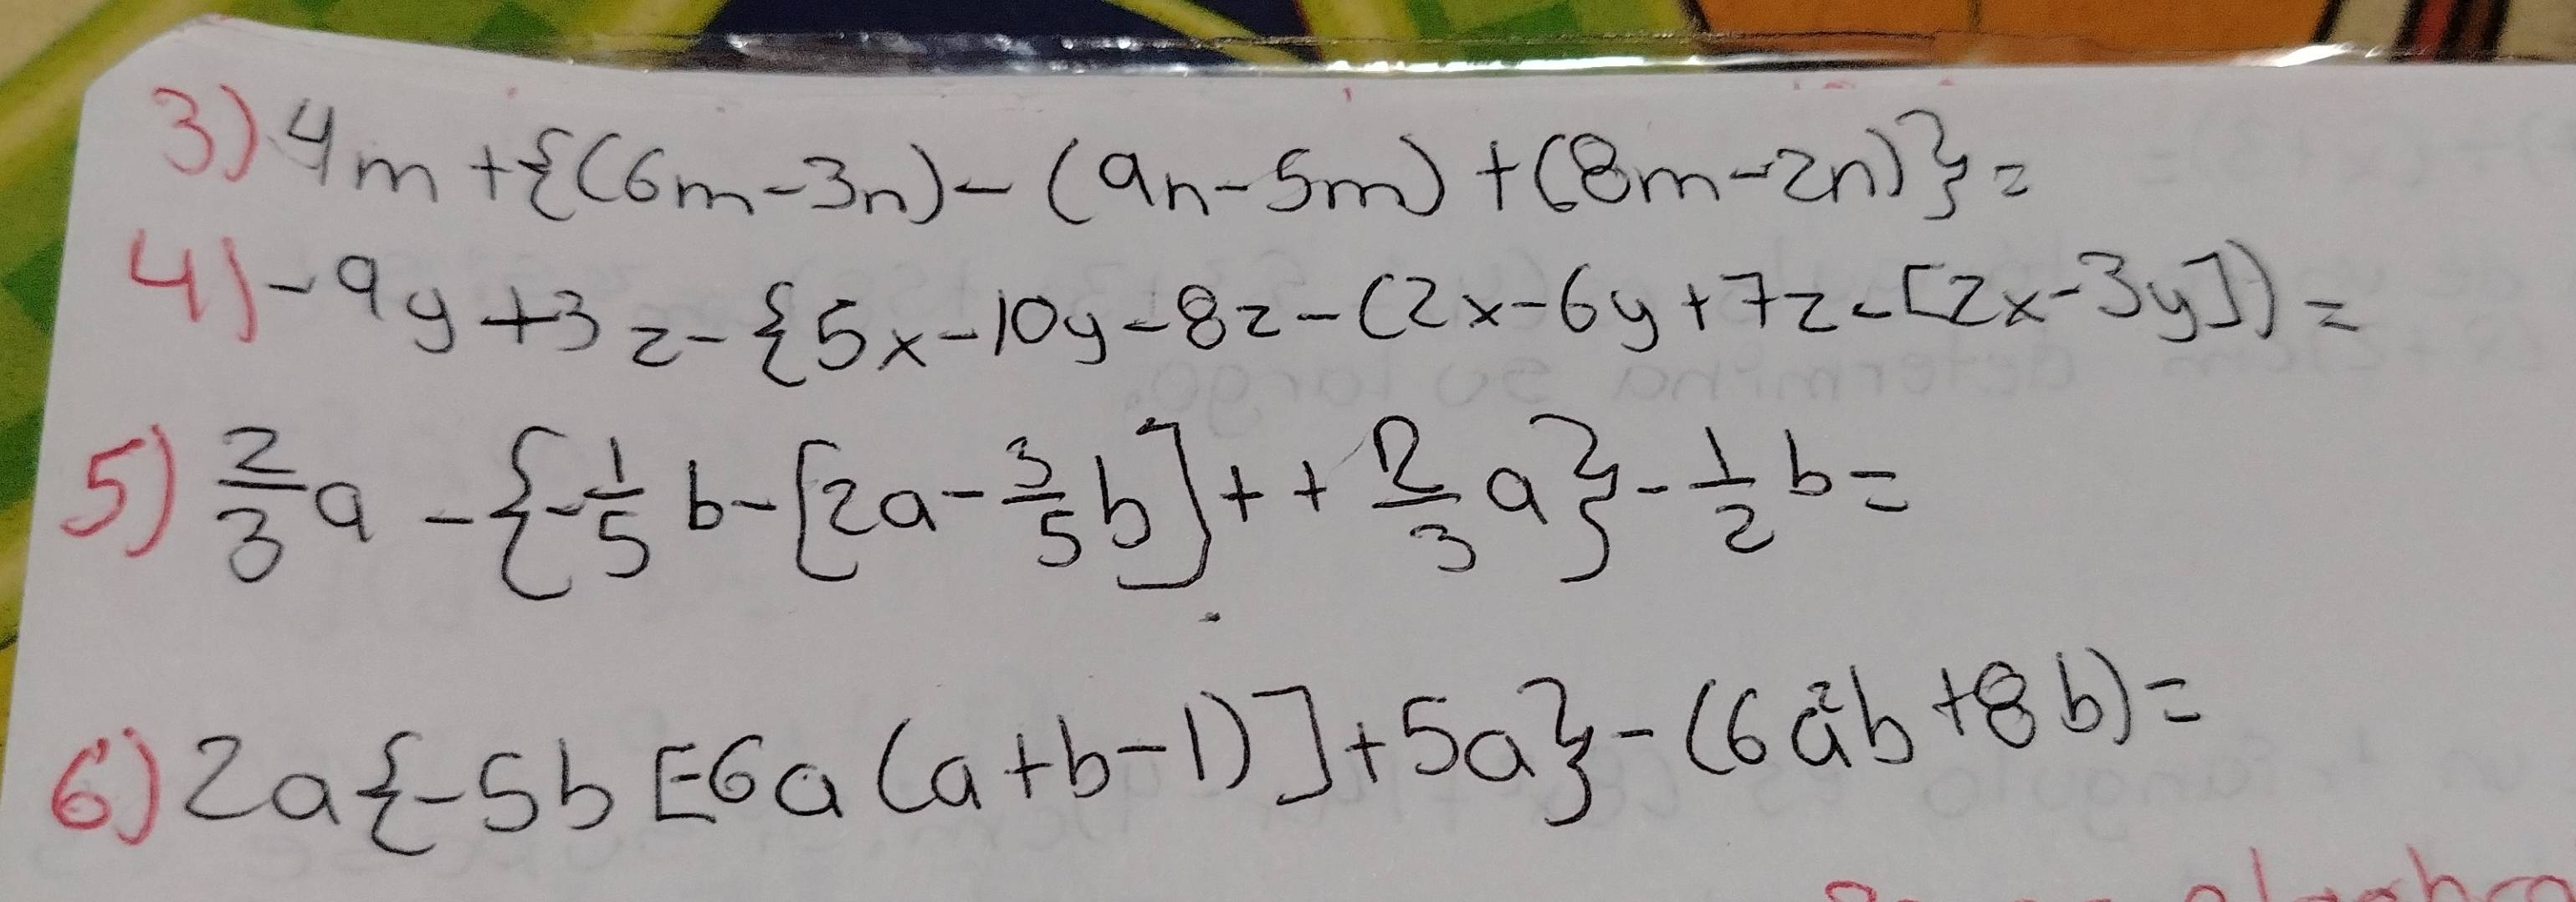 3) 4m+{(6m-3n)-(9n-5m)+(8m-2n)}=
4) -9y+3z-{5x-10y-8z-(2x-6y+7z-[2x-3y])=
5) 2/3 a-{-1/5 b-[2a-3/5 b]++2/3 a}-1/2 b=
6) 2a{-5b[-6a(a+b-1)]+5a}-(6a²b+8b)=